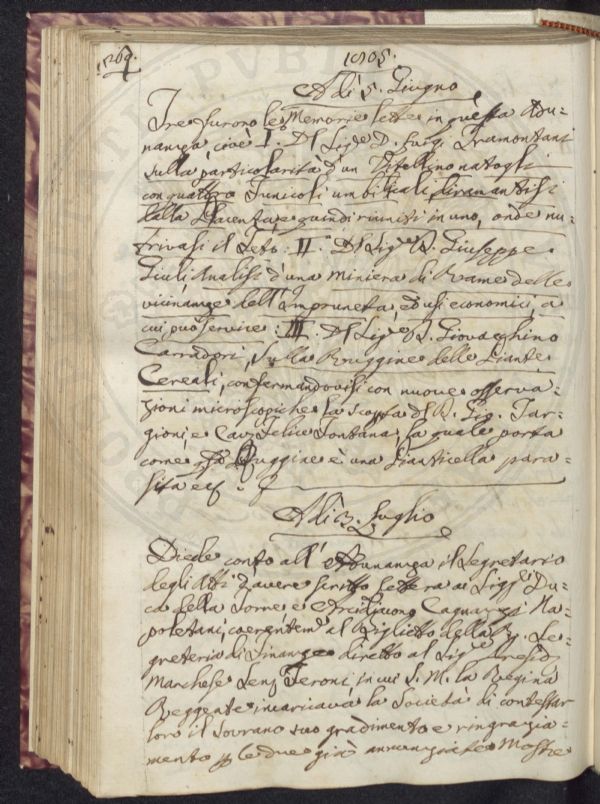 1805.
Adì 5. Giugno
Tre furono le Memorie lette in questa Adu=
nanza, cioè I. Del Sig.e D. Luig. Tramontani
sulla particolarità d'un Vitellino nato gli
con quattro Funicoli umbilicali, diramantisi
dalla Placenta, e quindi riuniti in uno, onde nu=
trivasi il Feto: II. Del Sig.e D. Giuseppe
Giuli Analisi d'una miniera di Rame delle
vicinanze dell'Impruneta, ed usi economici, a
cui può servire: III. Del Sig.e D. Giovacchino
Carradori, Sulla Ruggine delle Piante
Cereali, confermandovisi con nuove osserva=
zioni microscopiche la scoperta del D. Gio. Tar=
gioni, e Cav. Felice Fontana, la quale porta
come q.do Ruggine è una Pianticella para=
sita ec.
Adì 3. Luglio
Diede conto all'Adunanza il Segretario
degli Atti d'avere scritto lettera ai Sigg.i Du=
ca della Torre e Arcidiacono Cagnazzi Na=
poletani, coerentem.e al Biglietto della R. Se=
greteria di Finanze diretto al Sig.e Presid.
Marchese Feroni, in cui S. M. la Regina
Reggente incaricava la Società di contestar
loro il Sovrano suo gradimento e ringrazia=
mento p le due già annunziate Mostre